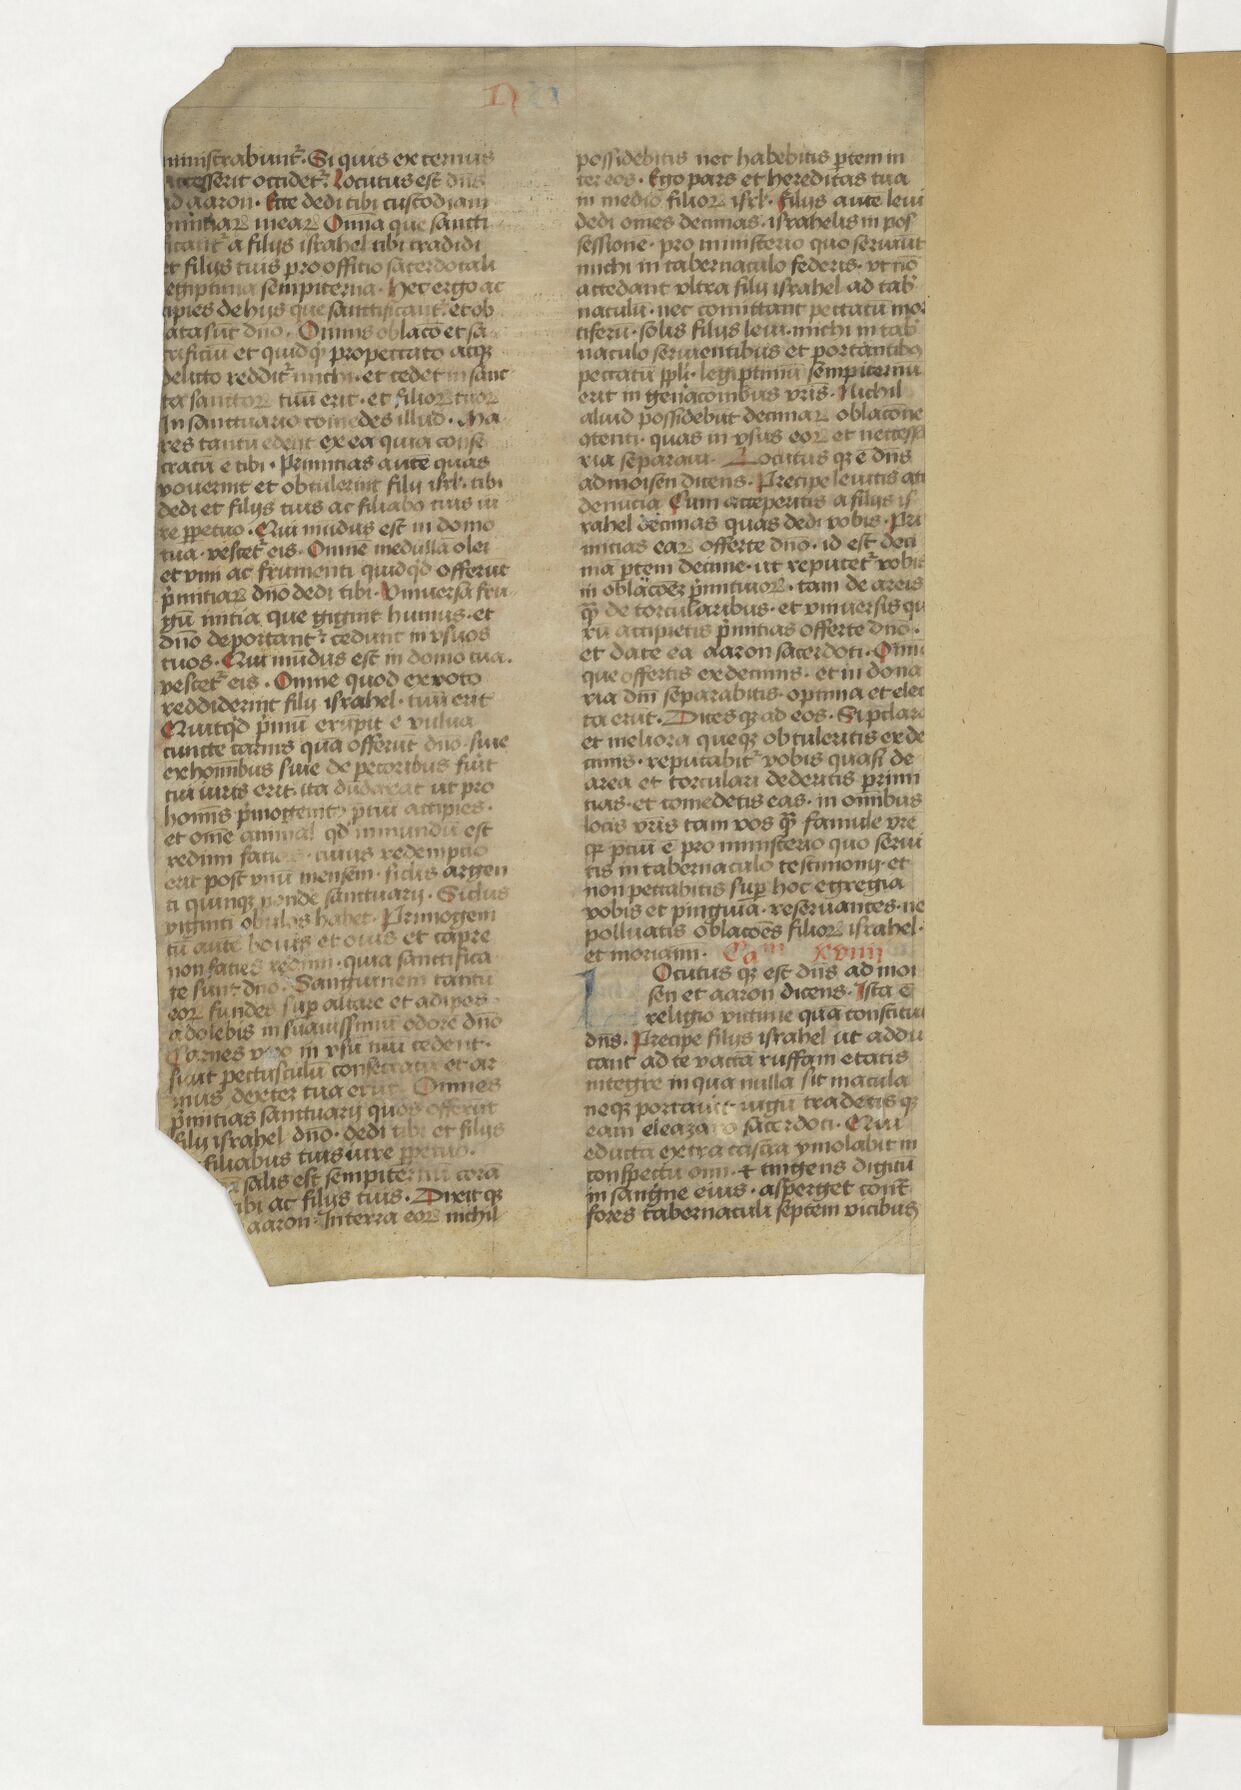 ministrabunt᷑. Si quis externus
accesserit occidet᷑. Locutus est dn̄s
ad aaron. Ecce dedi tibi custodiam
p̓mitiaꝝ meaꝝ Omnia que sancti
ficant᷑ a filijs israhel tibi tradidi
et filijs tuis pro officio sacerdotali
legiptima sempiterna. Hec ergo ac
cipies de hijs que sanctificant᷑. et ob
lata sūt dn̄o. Omnis oblac̄o et sa
crificiū et quidq̓ pro peccato atqꝫ
delicto reddit᷑ michi. et cedet in sanc
ta sanctoꝝ tuū erit. et filioꝝ tuoꝝ
In sanctuario comedes illud. Ma
res tantū edent ex ea quia conse
cratū ē tibi. Primitias autē quas
vouerint et obtulerint filij isrl̄. tibi
dedi et filijs tuis ac filiabꝫ tuis iu
re ꝑpetuo. Qui mūdus est in domo
tua. vescet᷑ eis. Omnē medullā olei
et vini ac frumenti quidq̓d offerūt
p̓mitiaꝝ dn̄o dedi tibi. Vniuersa fru
gū initia que gignit humus. et
dn̄o deportant᷑ cedunt in vsuos
tuos. Qui mūdus est in domo tua.
vescet᷑ eis. Omne quod ex voto
reddiderint filij israhel. tuū erit
Quitq̓d p̓mū erūpit e vulua
cuncte carnis quā offerūt dn̄o. siue
ex hoīnibus siue de pecoribus fūīt
tui iuris erit. ita dūtaxat ut pro
homīs p̓mogenito p̄ciū accipies.
et om̄e animal qd̓ inmundū est
redimi facias. cuius redemptio
erit post vnū mensem. siclis argen
ti quinqꝫ ponde sanctuarij. Siclus
viginti obulos habet. Primogeni
tū autē bouis et ouis et capre
non facies redimi. quia sanctifica
te sunt dn̄o. Sanguinem tantū
eoꝝ fundes suꝑ altare et adipes
adolebis in suauissimū odorē dn̄o
Carnes vero in vsū tuū cedent.
sicut pectusculū consecratū et ar
mus dexter tua erūt. Omnes
p̓mitias sanctuarij quos offerūt
filij israhel dn̄o. dedi tibi et filijs
filiabus tuis iure ꝑpetuo.
salis est sempiternū corā
tibi ac filijs tuis. Dixit qꝫ
aaron. In terra eoꝝ nichil
possidebitis nec habebitis ꝑtem in
ter eos. Ego pars et hereditas tua
in medio filioꝝ isrl̄. Filijs aute leui
dedi om̄es decimas. israhelis in pos
sessione. pro ministerio quo seruiūt
michi in tabernaculo federis. vt nō
accedant vltra filij israhel ad tab̓
naculū. nec comittant peccatū mor
tiferū. solis filijs leui. michi in tab̓
naculo seruientibus et portantibꝫ
peccatū ppl̓i. legiptimū sempiternū
erit in gen̓acōnibus vr̄is. Nichil
aliud possidebūt decimaꝝ oblacōne
ꝯtenti. quas in vsus eoꝝ et necessa
ria separaui. Locutus qꝫ ē dn̄s
ad moisen dicens. Precipe leuitis atqꝫ
denūcia Cum acceperitis a filijs is
rahel decimas quas dedi vobis. Pri
mitias eaꝝ offerte dn̄o. id est deci
mā ꝑtem decime. ut reputet᷑ vobis
in oblacōeꝫ p̓mitiuoꝝ. tam de areis
qꝫ̄ de torcularibus. et vniuersis quo
rū accipietis p̓mitias offerte dn̄o.
et date ea aaron sacerdoti. Omnia
que offertis ex decimis. et in dona
ria dn̄i separabitis. optima et elec
ta erūt. Dices qꝫ ad eos. Si p̄clara
et meliora queqꝫ obtuleritis ex de
cimis. reputabit᷑ vobis quasi de
area et torculari dederitis primi
tias. et comedetis eas. in om̄ibus
locis vr̄is tam vos qꝫ̄ famule vr̄e
qꝫ p̄ciū ē pro ministerio quo serui
tis in tabernaculo testimonij. et
non peccabitis suꝑ hoc egregia
vobis et pinguia. reseruantes. ne
polluatis oblacōes filioꝝ israhel.
et moriam̄i. Cam xviiij
LOcutus qꝫ est dn̄s ad moi
sen et aaron dicens. Ista ē
religio victime quā constituit
dn̄s. Precipe filijs israhel ut addu
cant ad te vaccā ruffam etatis
integre in qua nulla sit macula
neqꝫ portauit iugū tradetis qꝫ
eam eleazaro sacerdoti. Qui
educta extra castra ymolabit in
conspectu om̄i. ⁊ tingens digitū
in sangn̄e eius. asperget cont̄
fores tabernaculi septem vicibus